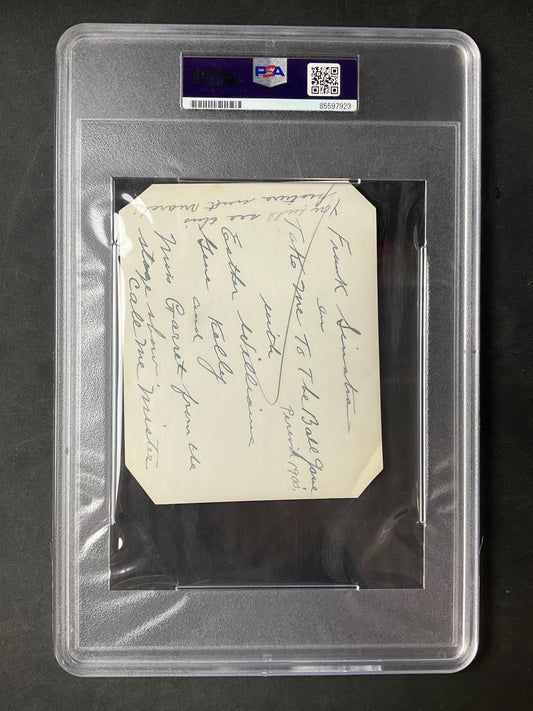 PSA
85597923
Frank Sinatra
in
Take Me To The Ball Game
Period 1900.
with
Esther Williams
Gene Kelly
and
Miss Garet from the
stage show
Call Me Mister
You will see this
picture next March